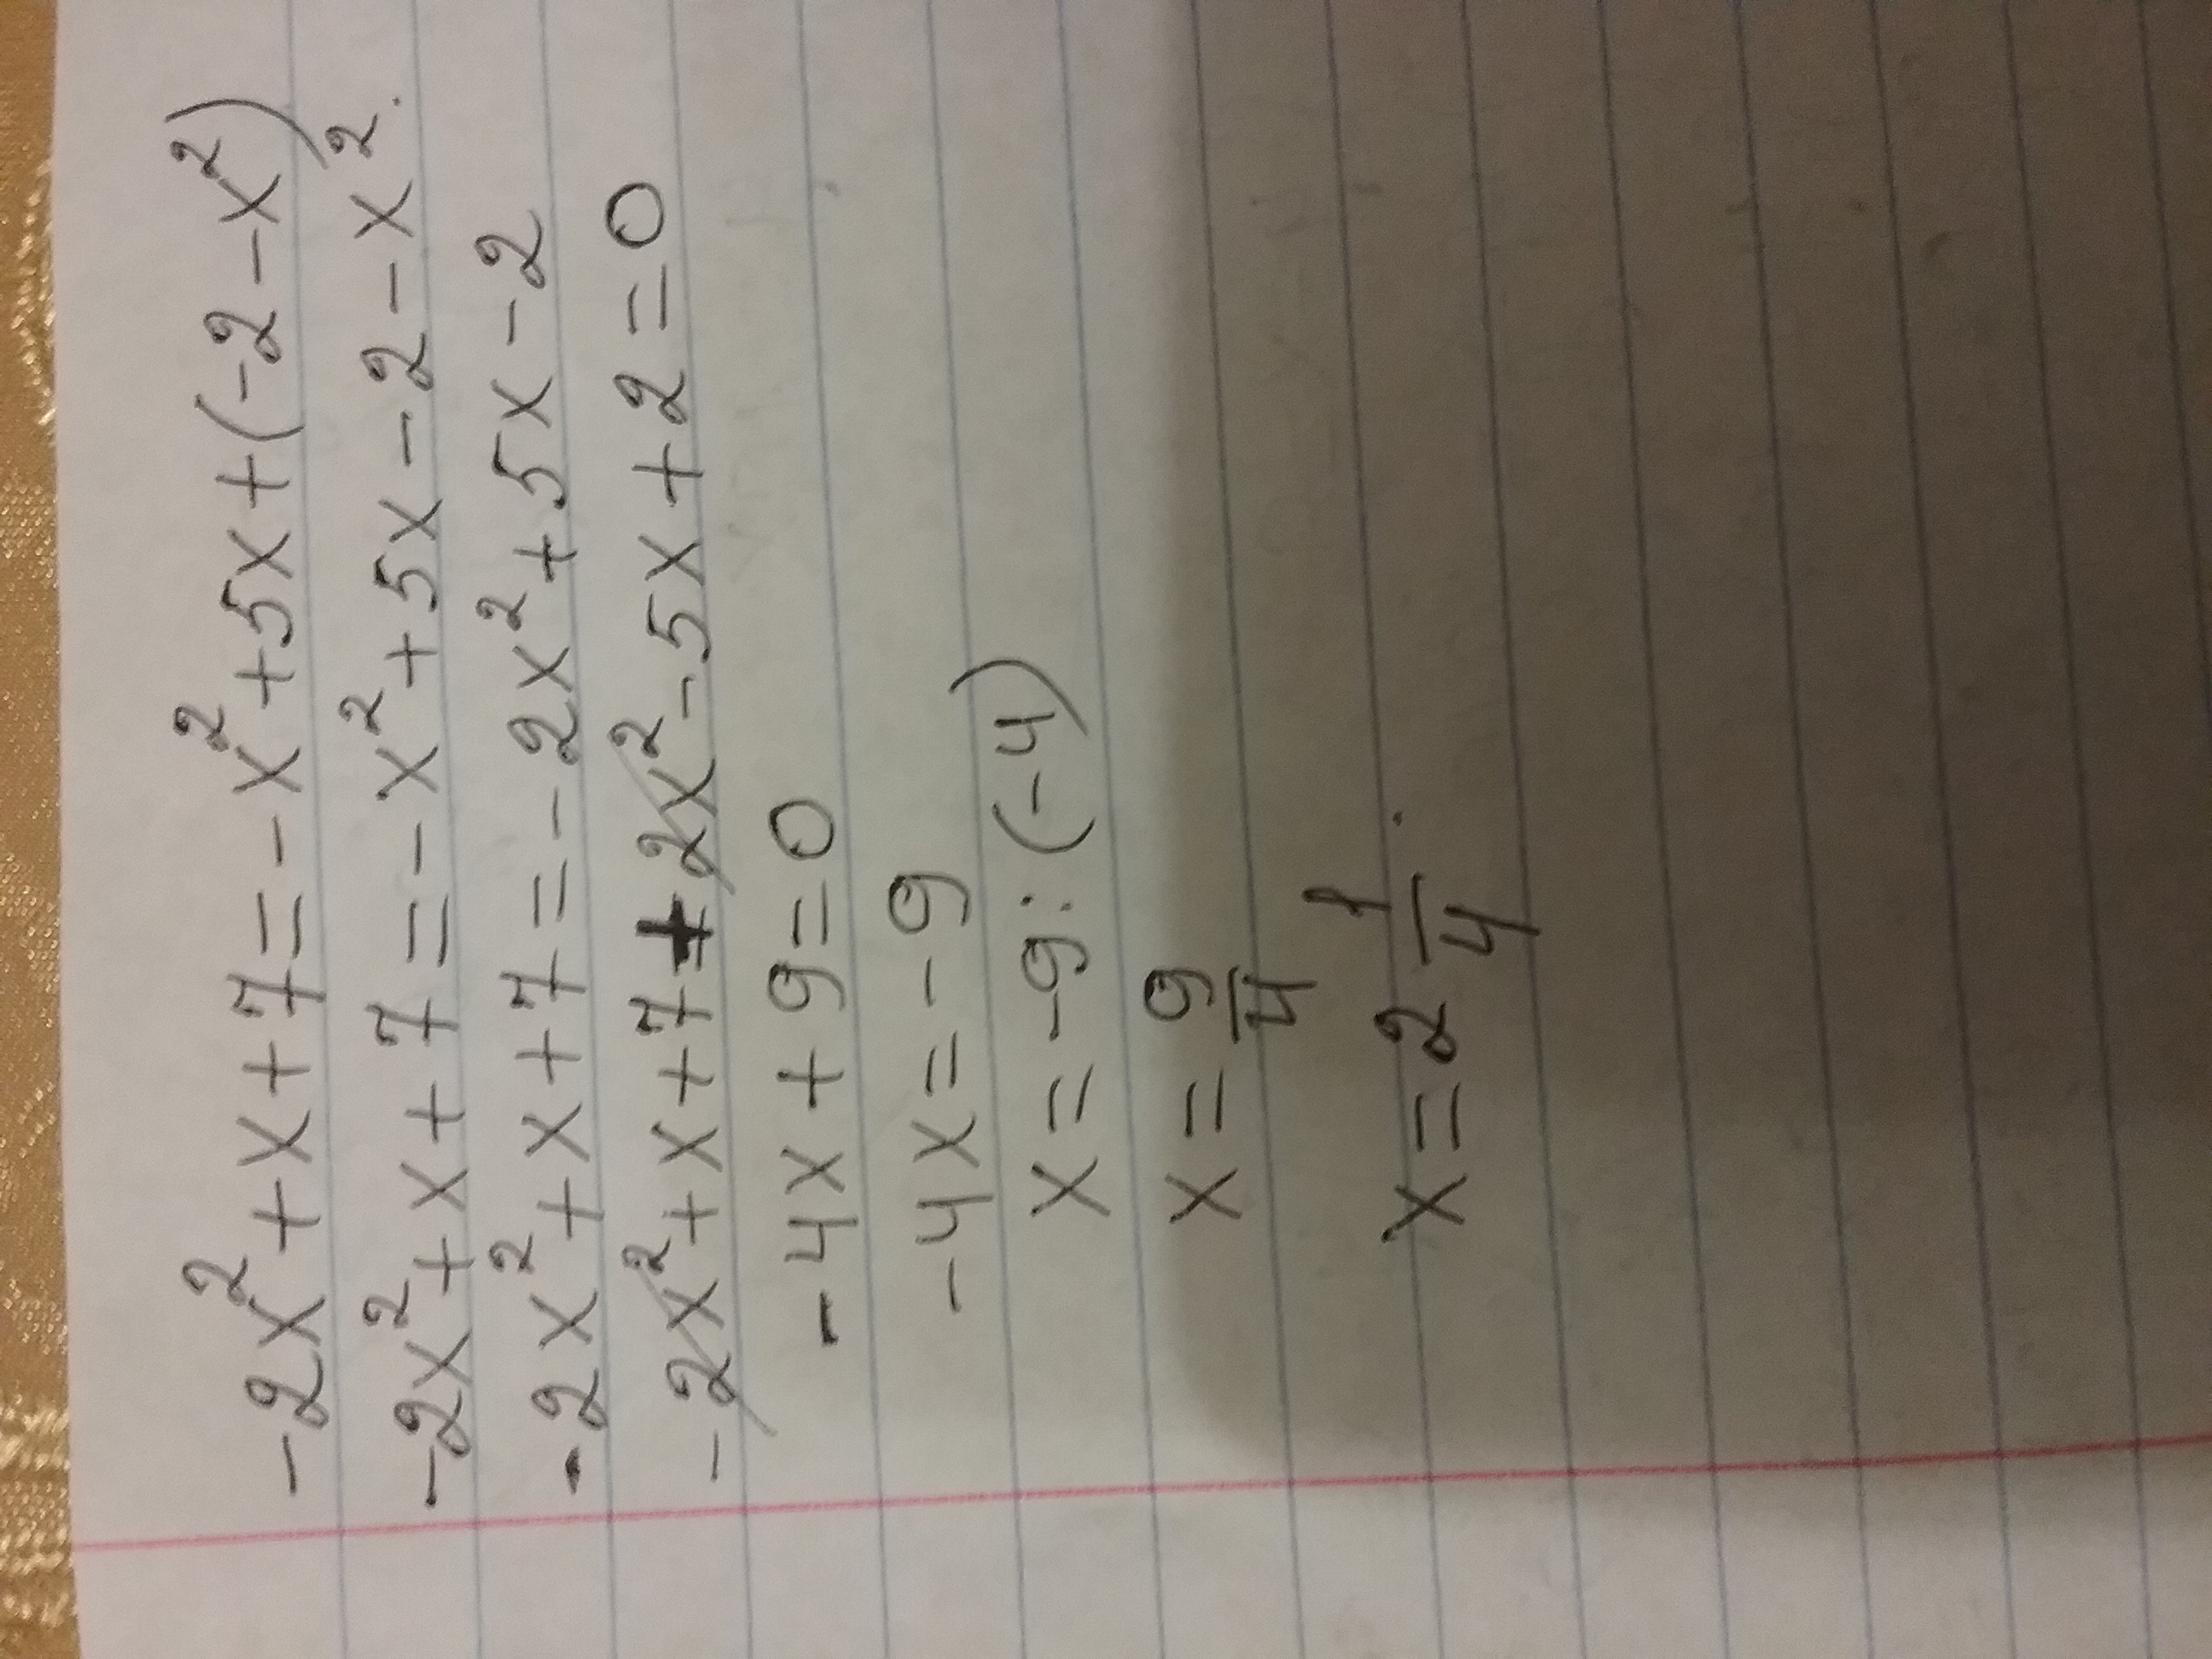 -2x²+x+7=-x²+5x+(-2-x²)
-2x²+x+7=-x²+5x-2-x².
-2x²+x+7=-2x²+5x-2
-2x²+x+7+2x²-5x+2=0
-4x+9=0
-4x=-9
x=-9:(-4)
x=9/4
x=2 1/4.